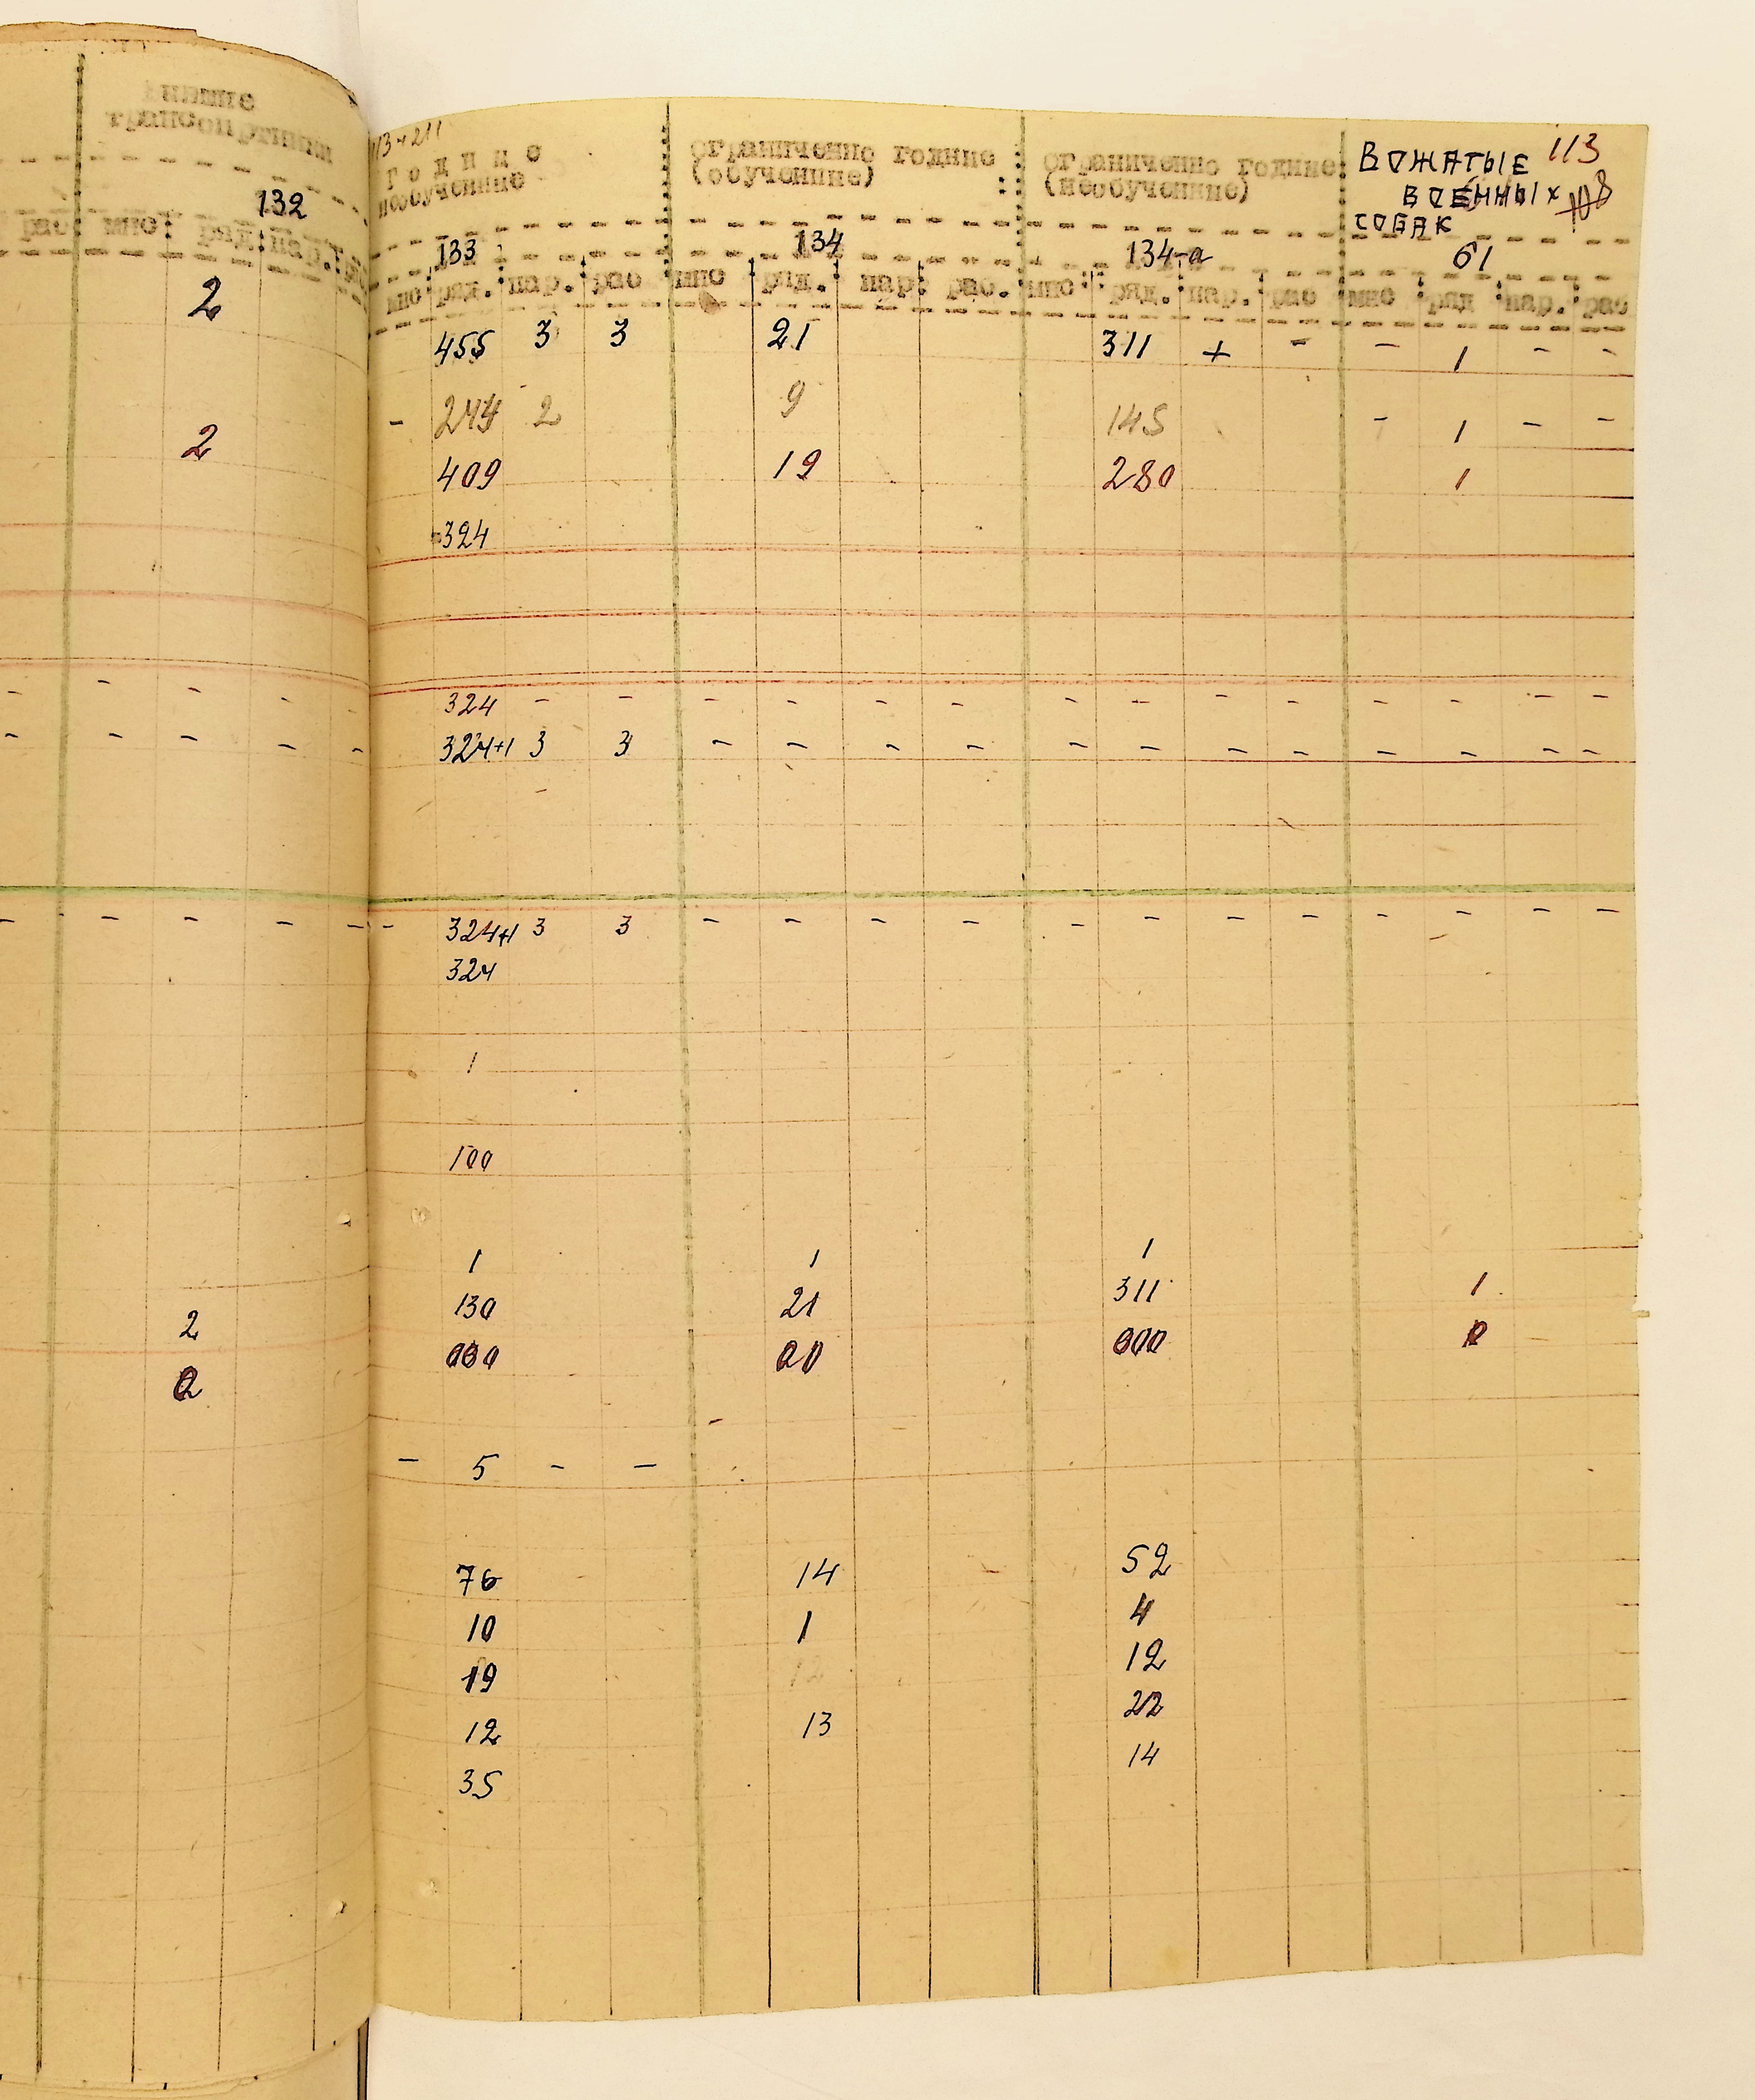 транспортники
132
рас мнс ряд нар.
2
2
- - - - -
- - - - -
- - - - - -
2
0
113+211
годные
необученные
ограниченно годные
(обученные)
ограниченно годные
(необученные)
ВОЖАТЫЕ 113
ВОЕННЫХ 108
СОБАК
133 134 134-а 61
мнс ряд. нар. рас мнс ряд. нар рас. мнс ряд. нар. рас мнс ряд нар. рас
455 3 3 21 311 + - - 1 - -
- 244 2 9 145 - 1 - -
409 19 280 1
324
324 - - - - - - - - - - - - - -
324+1 3 3 - - - - - - - - - - - -
324+1 3 3 - - - - - - - - - - - -
324
1
100
1 1 1
130 21 311 1
000 00 000 0
- 5 - -
76 14 52
10 1 4
19 12 12
12 13 22
35 14